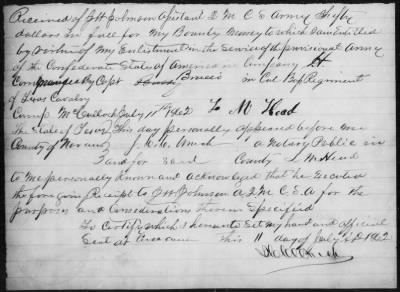 Received of J H Johnson Asst and Q M C S Army Fifty
dollars in full for my Bounty Money to which I am entitled
by virtue of my Enlistment in the Service of the provisional Army
of the Confederate States of America in Company H
Commanded by Capt in Col Regiment
of Texas Cavalry
Camp McCulloch July 11th 1862 M Head
The State of Texas This day personally appeared before me
County of a Notary Public in
and for said County M Head
to me personally known and acknowledged that he executed
the foregoing Receipt to J H Johnson A Q M C S A for the
purposes and Considerations therein Specified
To Certify which I hereunto Set my hand and official
Seal at this 11 day of July AD 1862